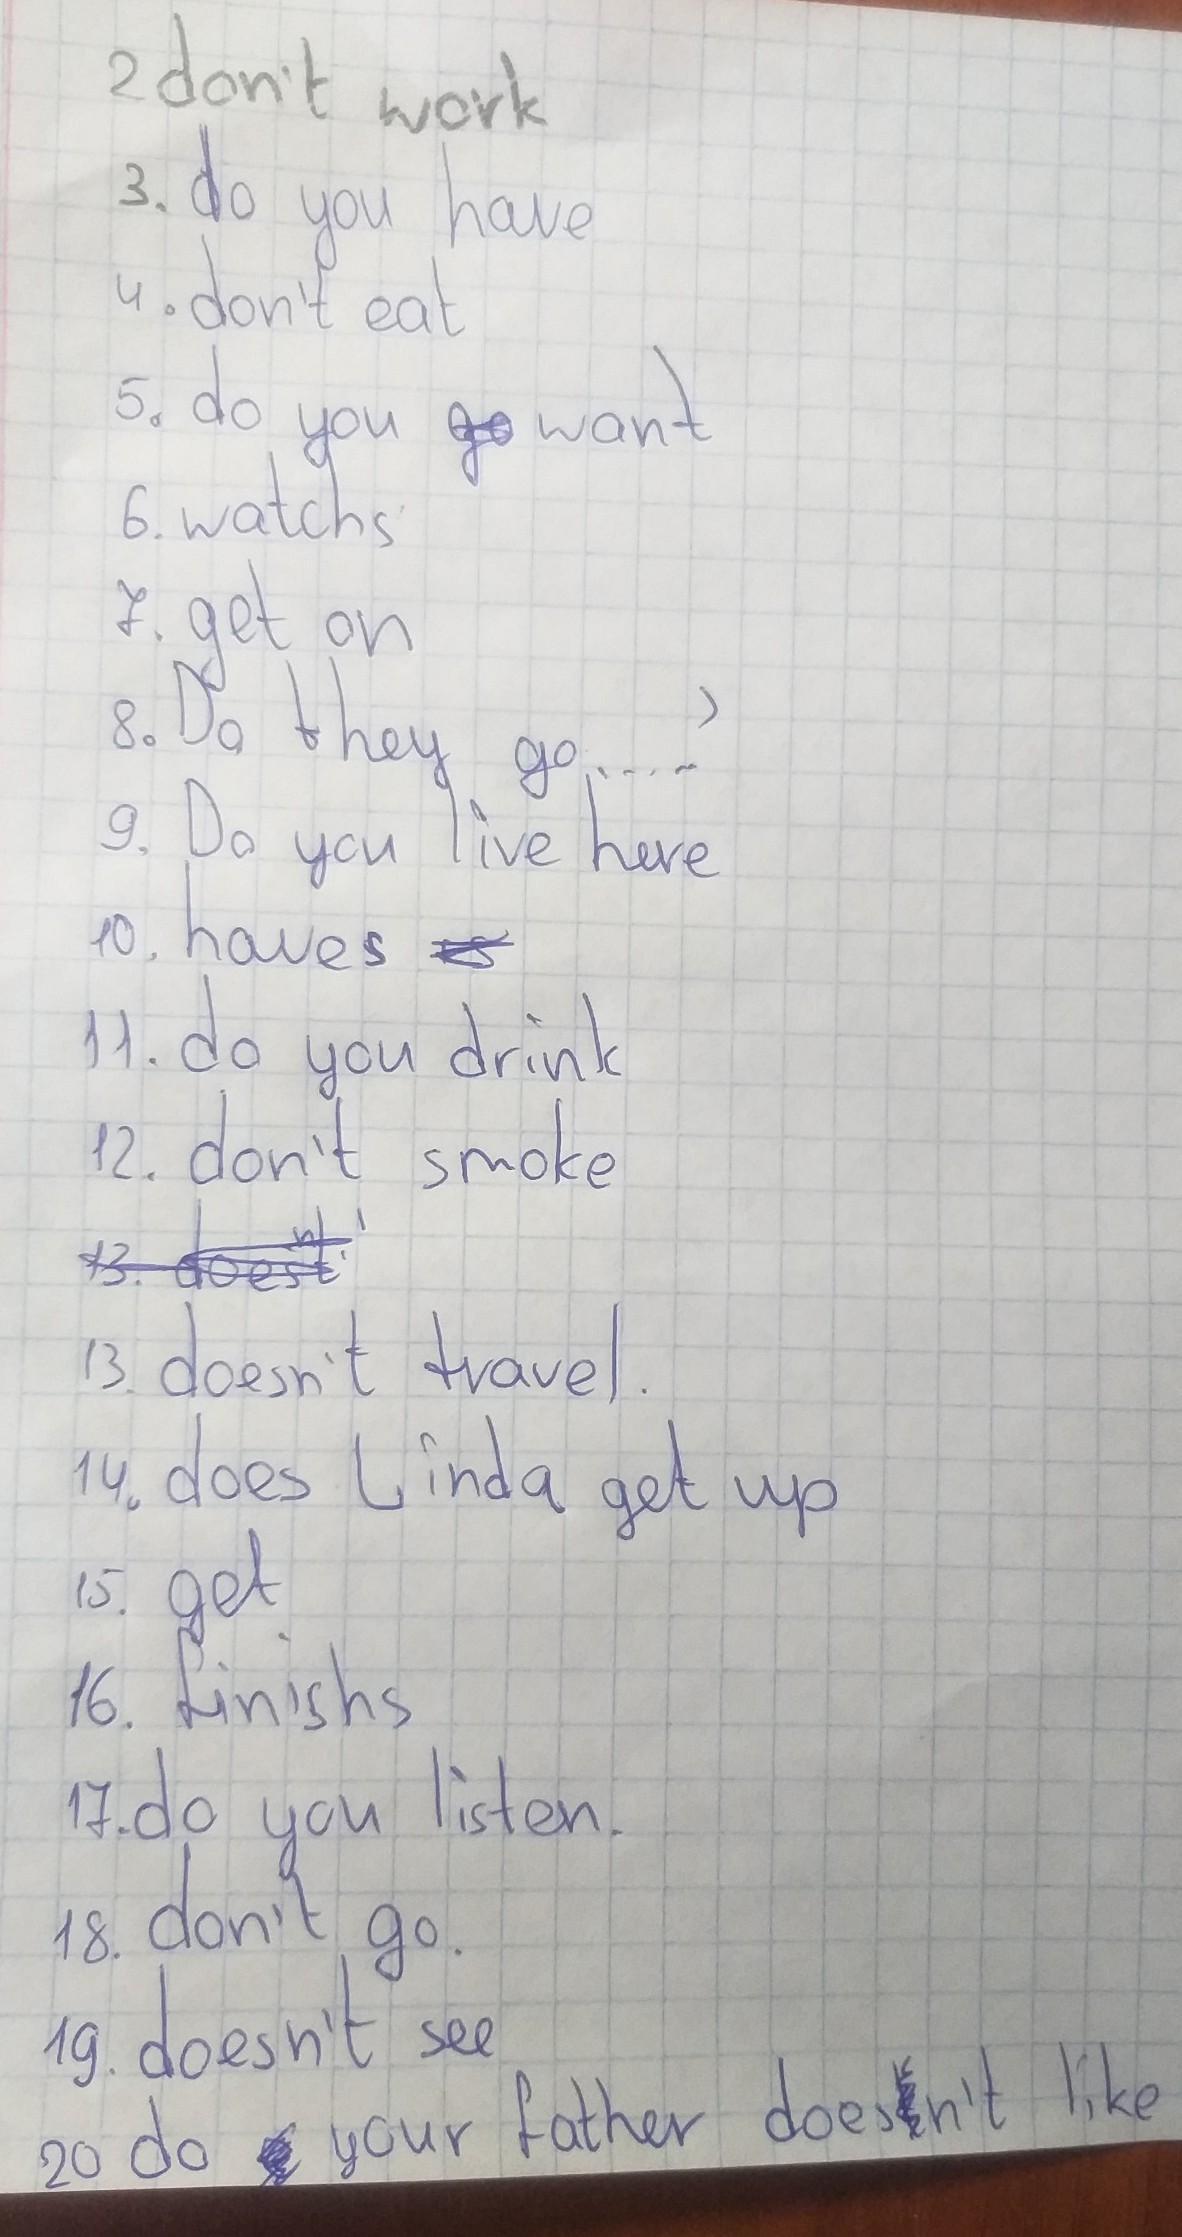 2 don't work
3. do you have
4. don't eat
5. do you go want
6. watchs
7. get on
8. Do they go.....?
9. Do you live here
10. haves
11. do you drink
12. don't smoke
13. doesn't
13. doesn't travel.
14. does Linda get up
15. get
16. finishs
17. do you listen.
18. don't go.
19. doesn't see
20 do your father doesn't like